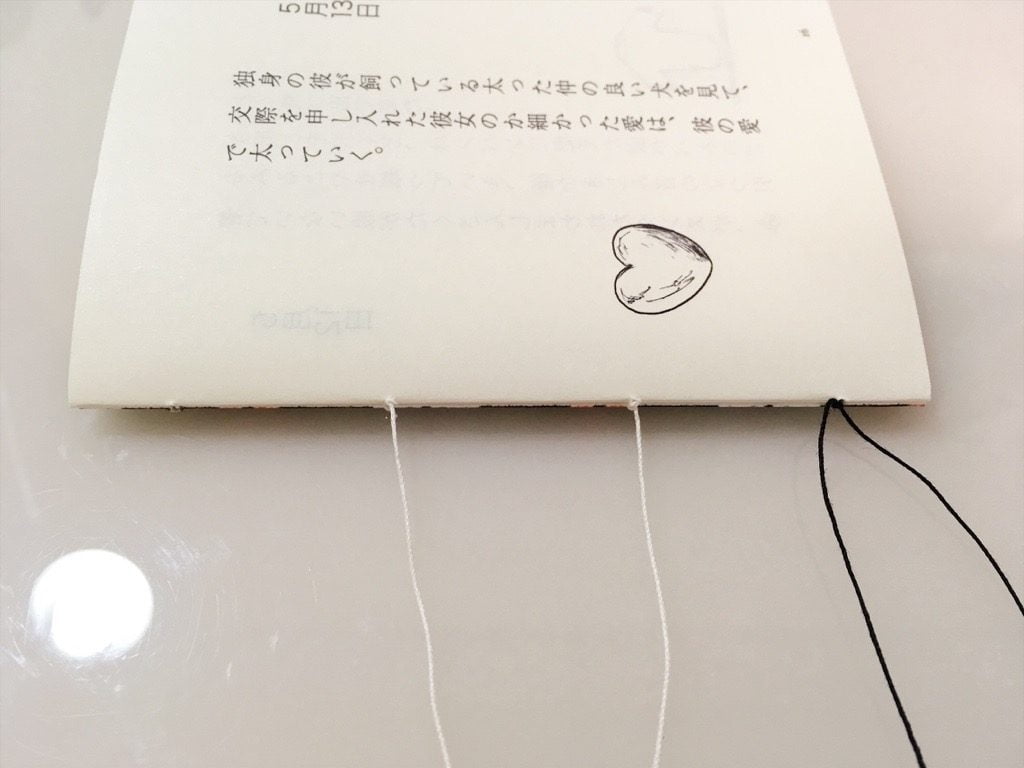 5月13日
独身の彼が飼っている太った仲の良い犬を見て、
交際を申し入れた彼女のか細かった愛は、彼の愛
で太っていく。